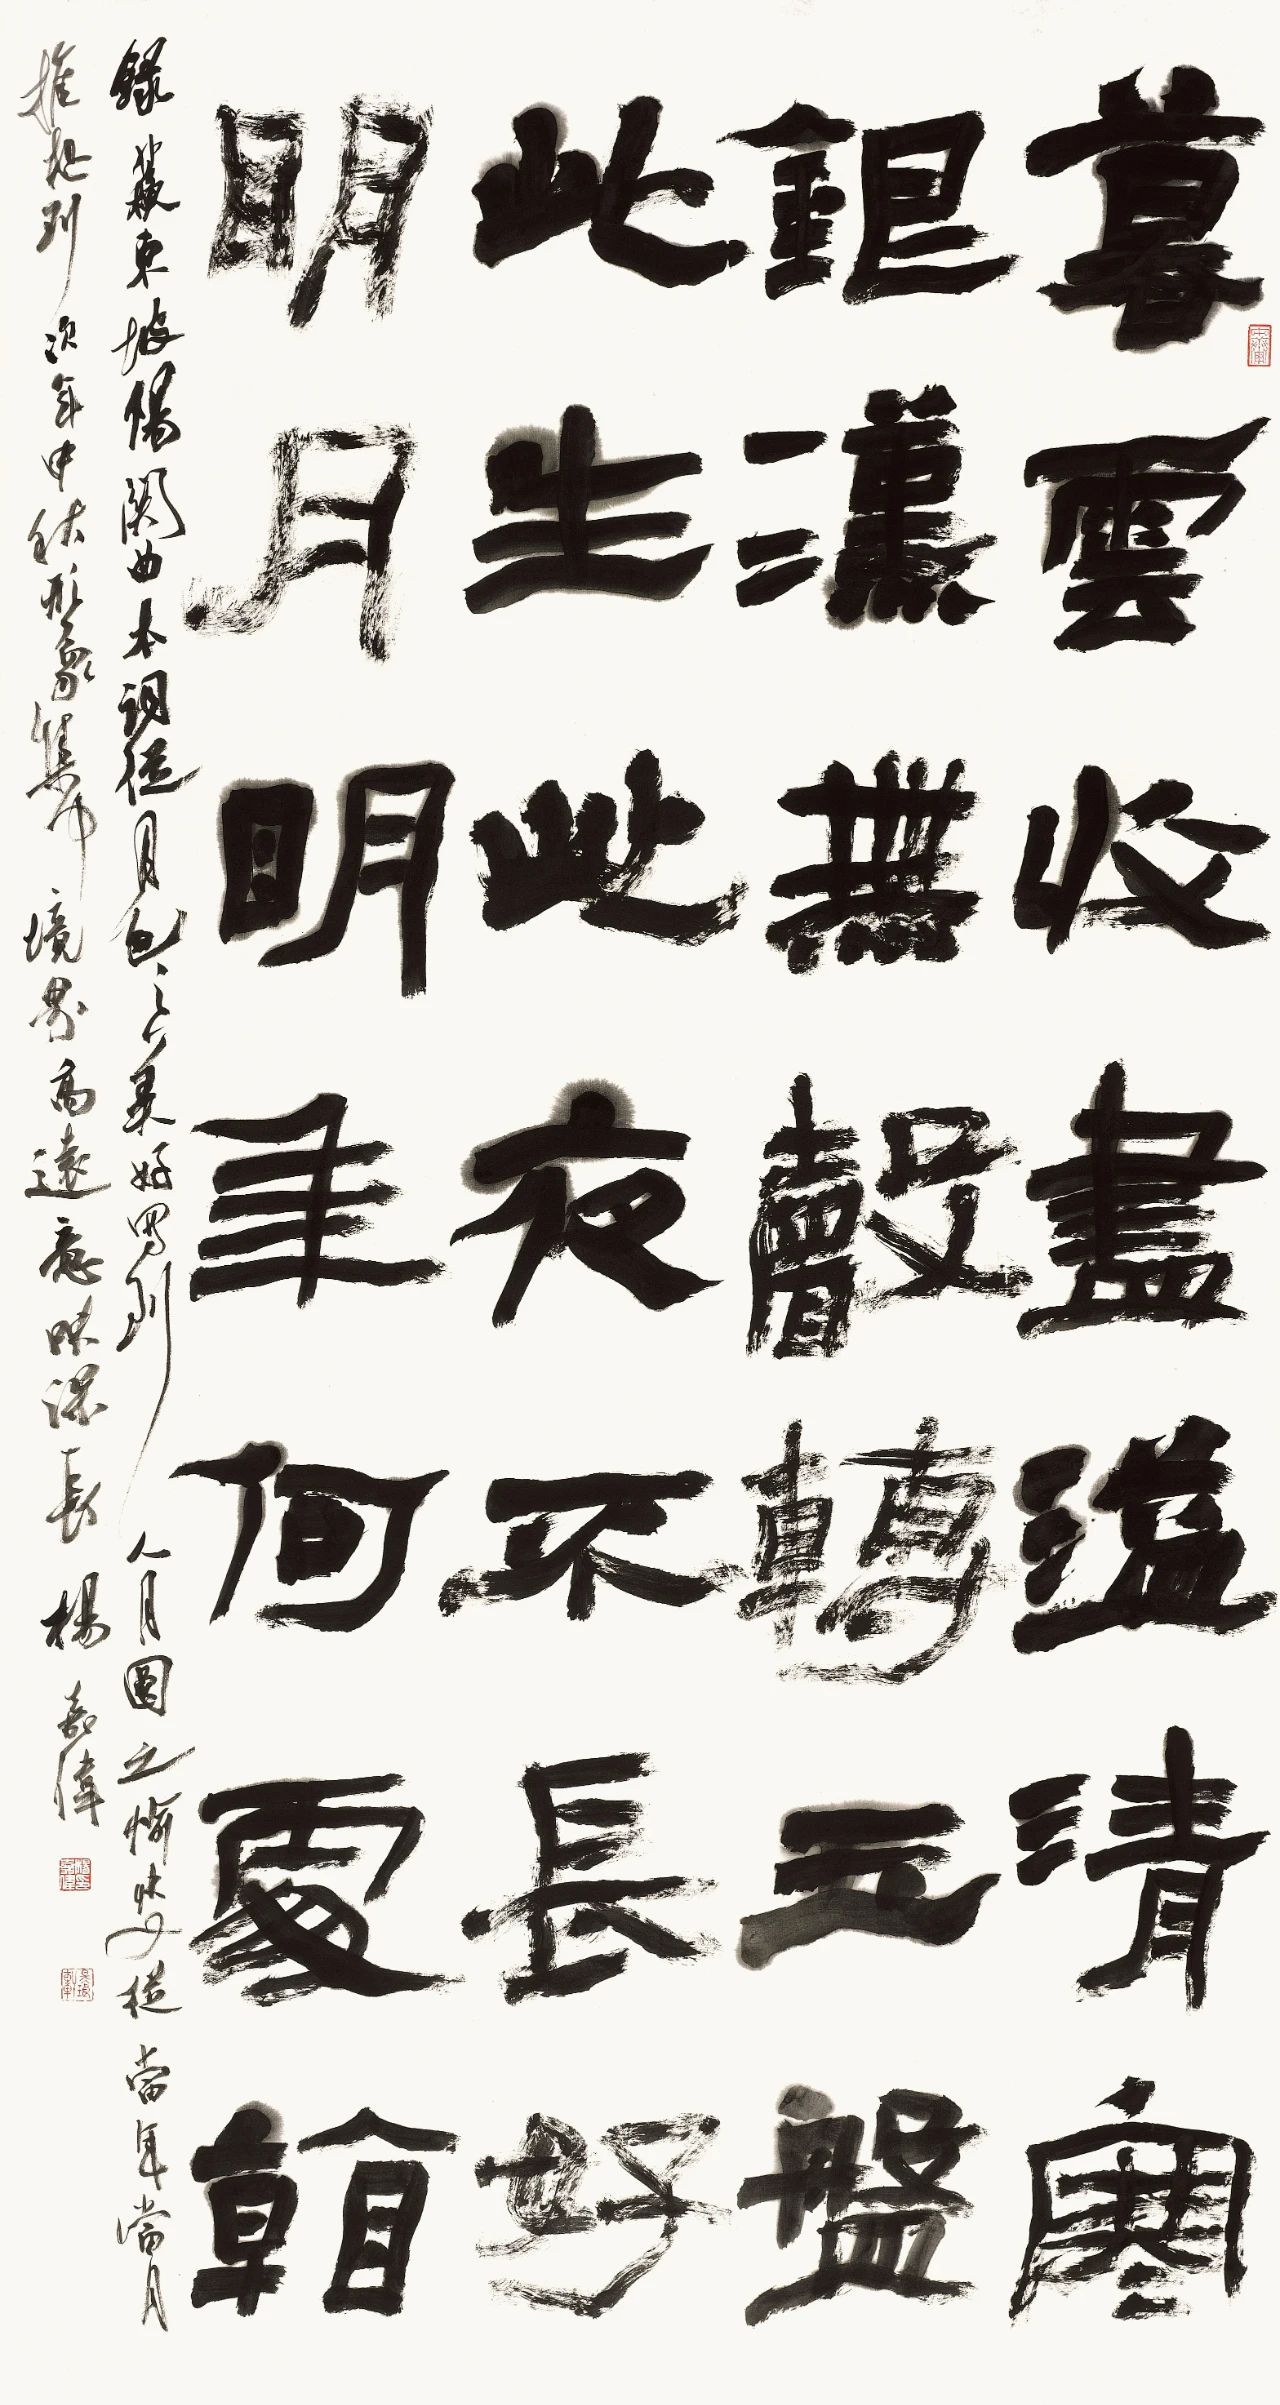 暮雲收盡溢清寒
銀漢無聲轉玉盤
此生此夜不長好
明月明年何處看
錄蘇東坡陽關曲本詞從月色之美好寫到人月圓之愉快又從當年當月
推想到次年中秋形象集中境界高遠意味深長 楊偉